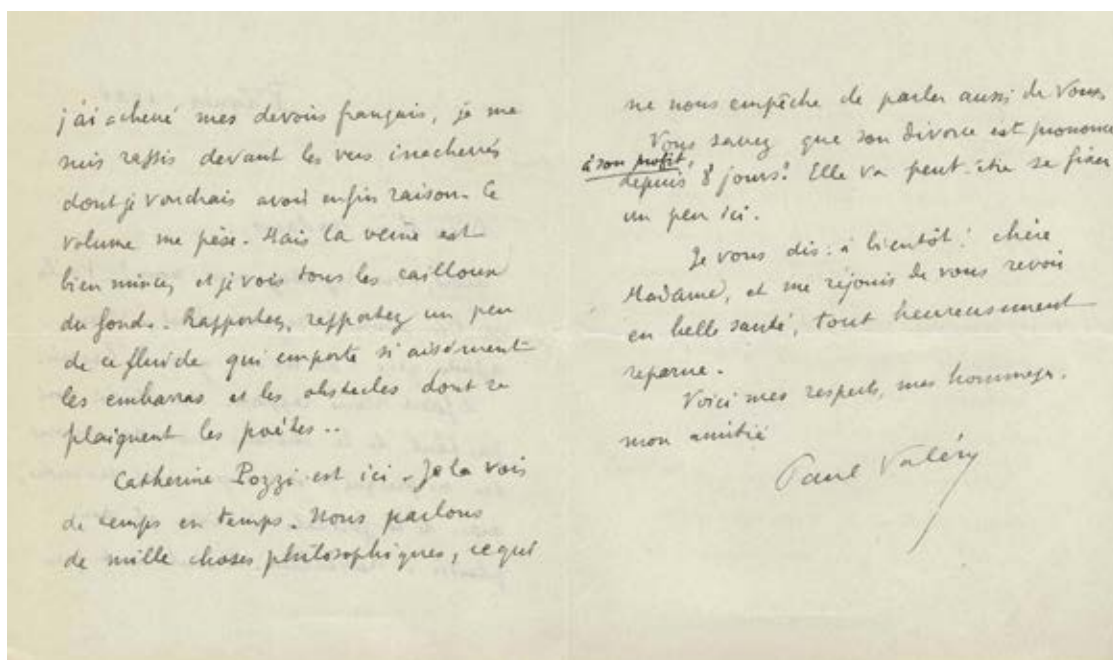 j'ai achevé mes devoirs français, je me
suis rassis devant les vers inachevés
dont je voudrais avoir enfin raison. Ce
volume me pèse. Mais la veine est
bien mince, et je vois tous les cailloux
du fond. Rapportez, rapportez un peu
de ce fluide qui emporte si aisément
les embarras et les obstacles dont se
plaignent les poètes..
Catherine Pozzi est ici. Je la vois
de temps en temps. Nous parlons
de mille choses philosophiques, ce qui
ne nous empêche de parler aussi de Vous.
Vous savez que son divorce est prononcé
à son profit,
depuis 8 jours! Elle va peut-être se fixer
un peu ici.
Je vous dis: à bientôt! chère
Madame, et me réjouis de vous revoir
en belle santé, tout heureusement
reparue.
Voici mes respects, mes hommages,
mon amitié
Paul Valéry